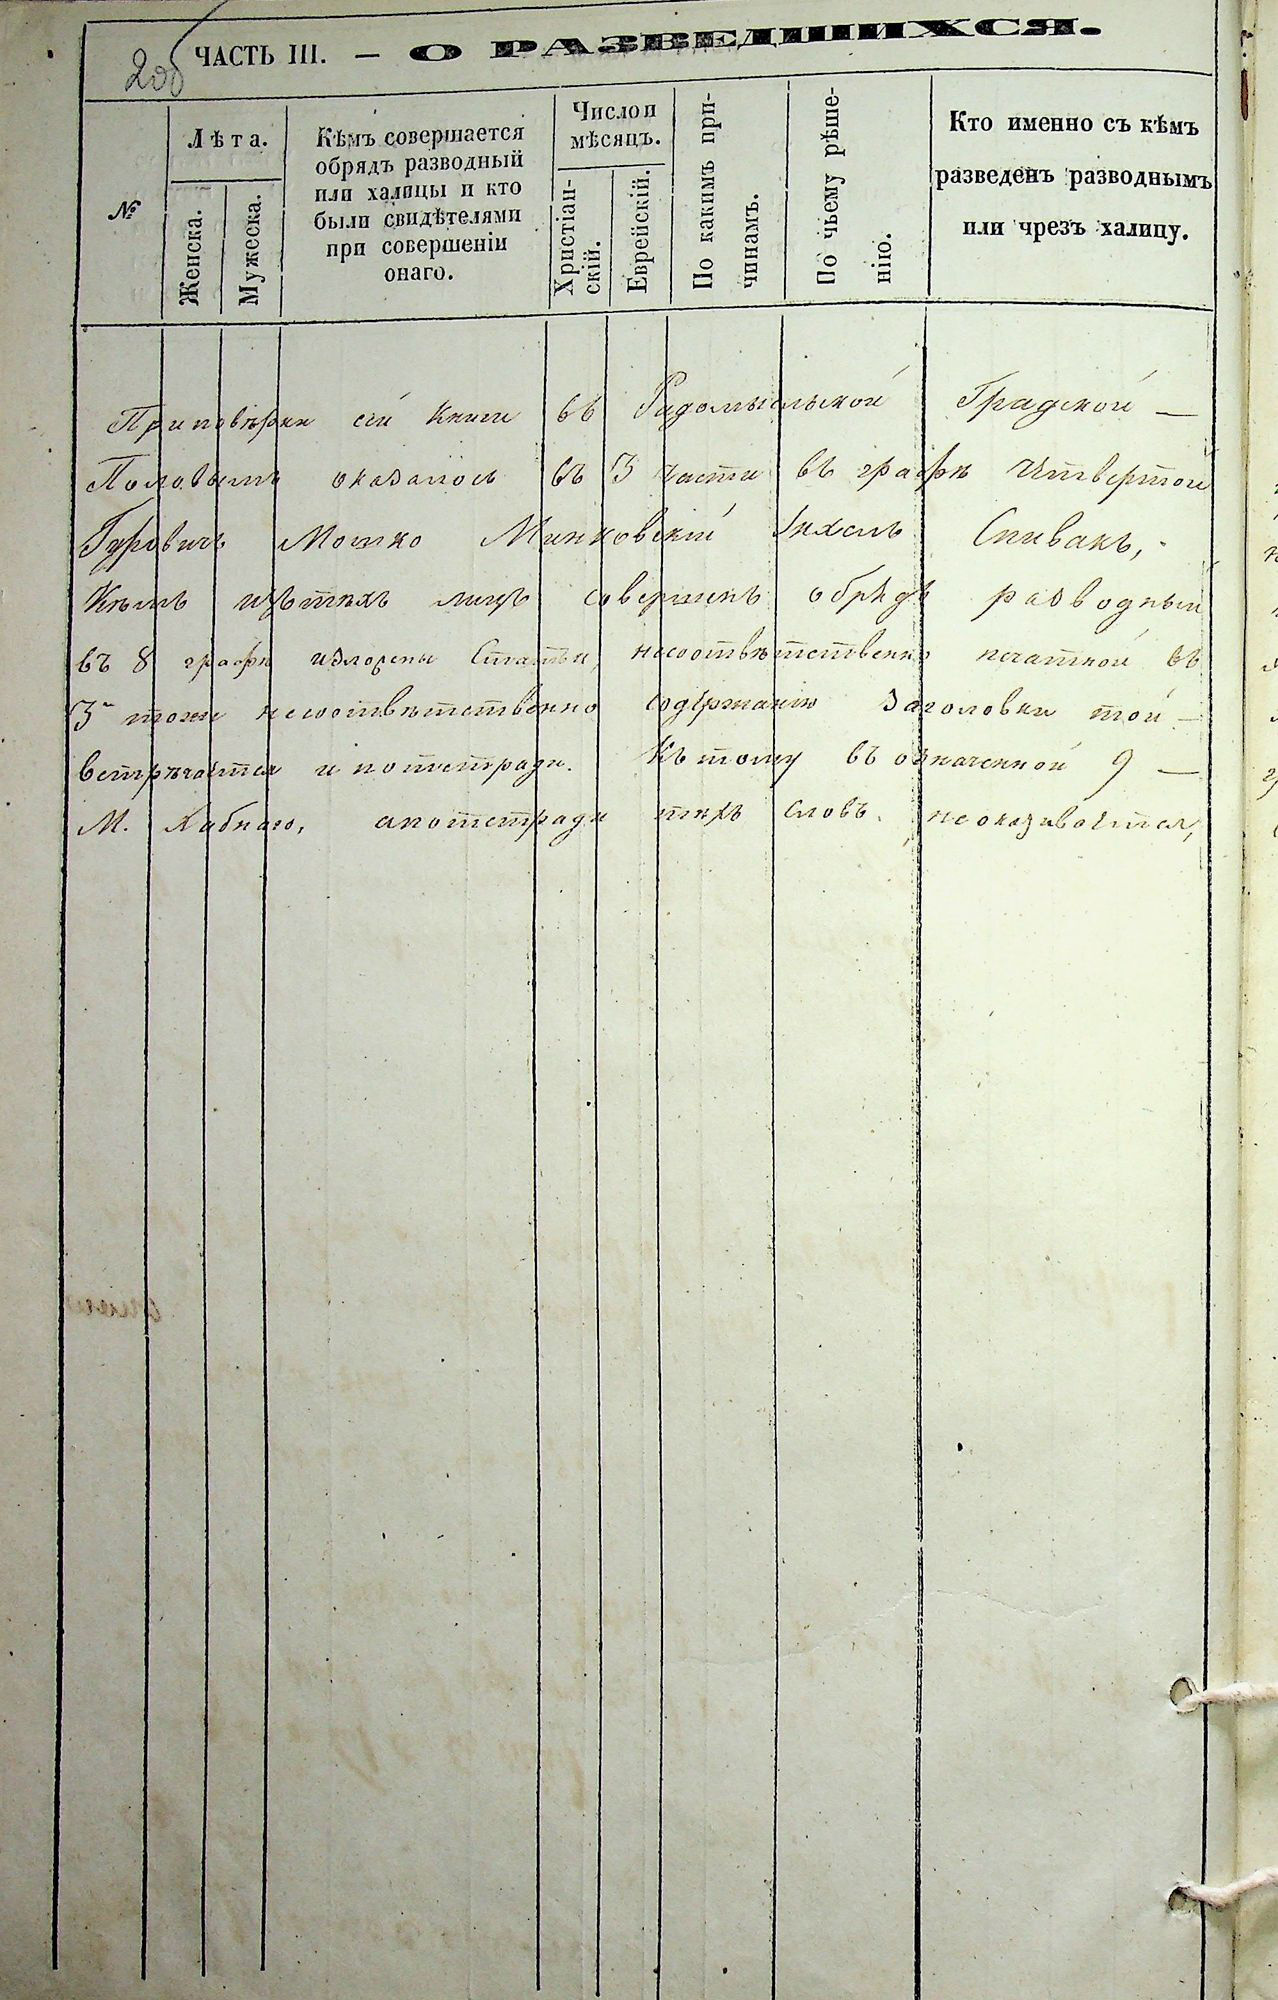 20об
ЧАСТЬ III. — О РАЗВЕДШИХСЯ.
№
Лѣта.
Женска.
Мужеска.
Кѣмъ совершается
обрядъ разводный
или халицы и кто
были свидѣтелями
при совершеніи
онаго.
Число и
мѣсяцъ.
Христіан-
скій.
Еврейскій.
По какимъ при-
чинамъ.
По чьему рѣше-
нію.
Кто именно съ кѣмъ
разведенъ разводнымъ
или чрезъ халицу.
При повѣрки сей книги въ Радомысльской Градской —
оказалось въ 3 части въ графѣ четвертой
Гурвичъ Мошко Минковскій Спивакъ,
Кѣмъ изъ тѣхъ лицъ совершенъ обрядъ разводный
въ 8 графѣ изложены Статьи, несоотвѣтственно печатной въ
3 тоже несоотвѣтственно содержанію Заголовки той —
встрѣчается и по тетради. Къ тому въ означенной 9 —
М. Хабного, а по тетради тѣхъ словъ неоказивается,